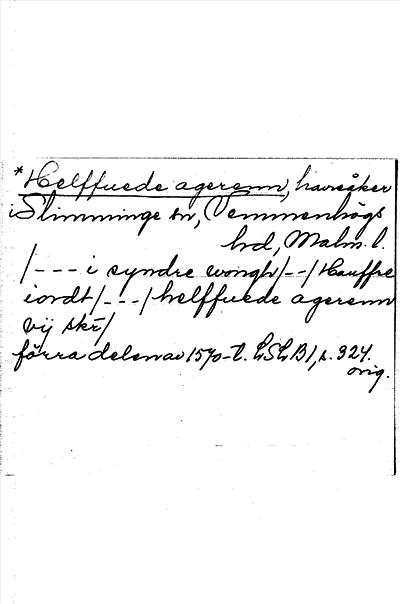 *Helffuede agerenn, havreåker
i Slimminge sn, Vemmenhögs
hd, Malm. l.
/--- i syndre wongh/--/Hauffre
iordt/---/helffuede agerenn
vij skr/
förra delen av 1570-t. LSLB1, s. 324.
orig.